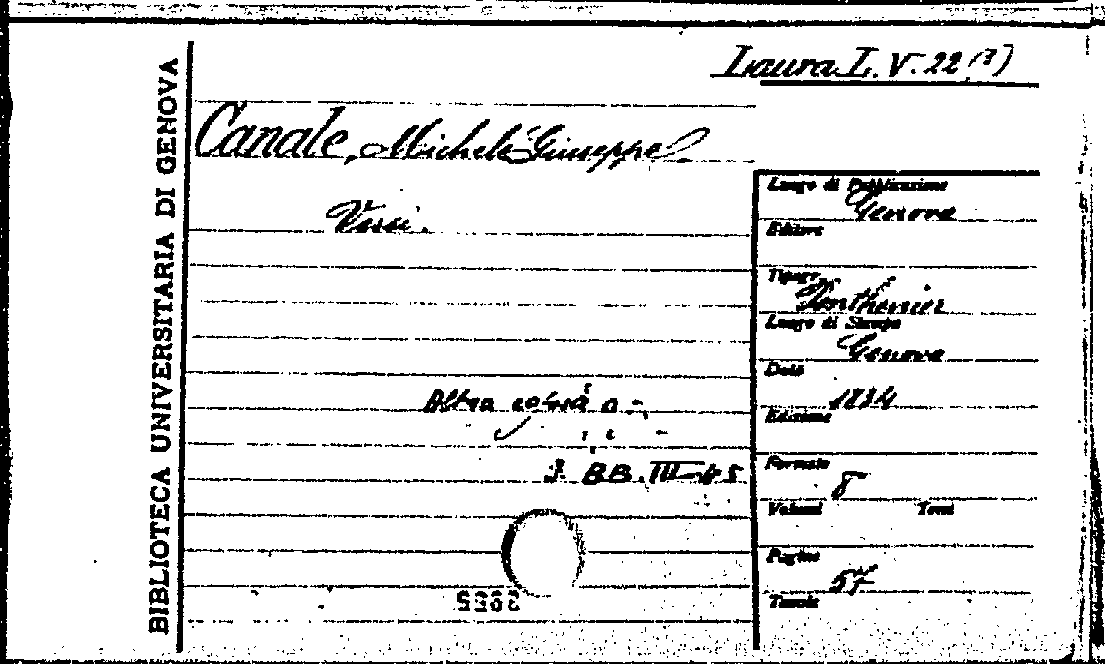 Laura L. V. 22 (7)
BIBLIOTECA UNIVERSITARIA DI GENOVA
Canale, Michele Giuseppe.
Versi.
Altra copia a
3. BB. III-45
Luogo di Pubblicazione
Genova
Editore
Tipogr.
Ponthenier
Luogo di Stampa
Genova
Data
1834
Edizione
Formato
8
Volumi Tomi
Pagine
57
Tavole